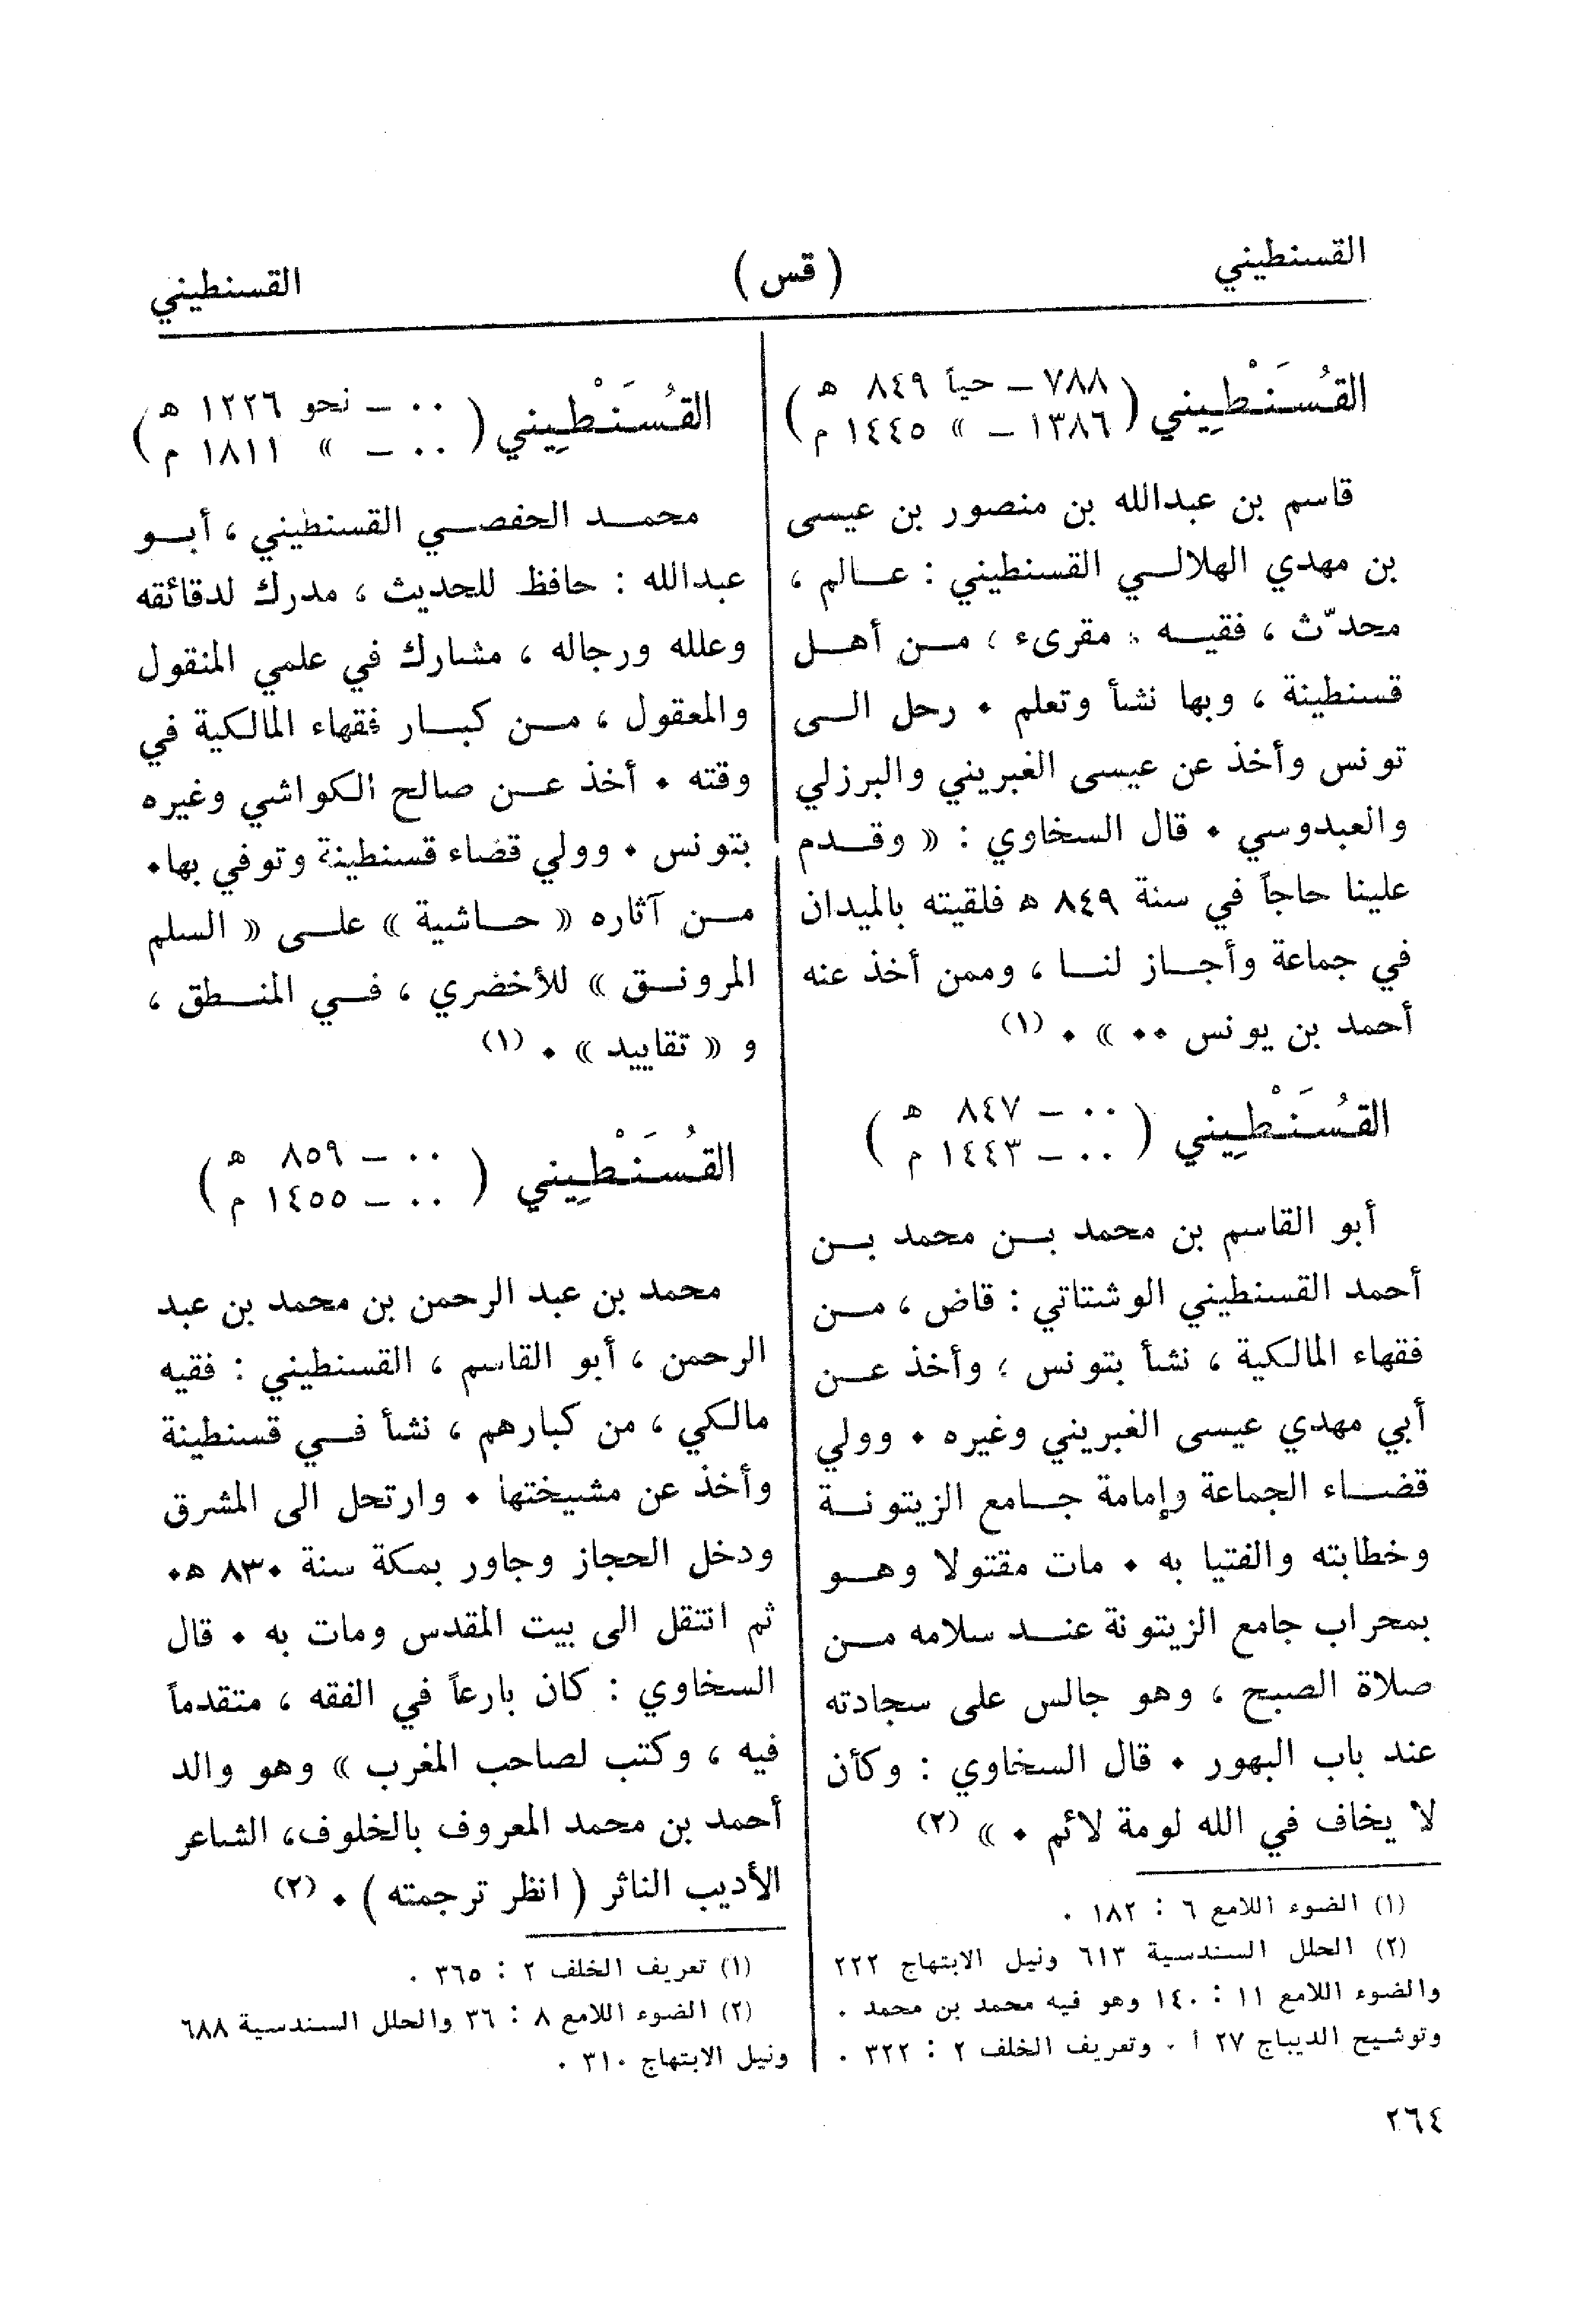 القسنطيني
( قس )
القسنطيني
القُسَنْطِيني ( ٧٨٨ – حياً ٨٤٩ هـ
١٣٨٦ – » ١٤٤٥ م )
قاسم بن عبدالله بن منصور بن عيسى
بن مهدي الهلالي القسنطيني : عالم ،
محدّث ، فقيه ، مقرىء ، من أهل
قسنطينة ، وبها نشأ وتعلم . رحل الى
تونس وأخذ عن عيسى الغبريني والبرزلي
والعبدوسي . قال السخاوي : « وقدم
علينا حاجاً في سنة ٨٤٩ هـ فلقيته بالميدان
في جماعة وأجاز لنا ، وممن أخذ عنه
أحمد بن يونس .. » . (١)
القُسَنْطِيني ( ٠٠ – ٨٤٧ هـ
٠٠ – ١٤٤٣ م )
أبو القاسم بن محمد بن محمد بن
أحمد القسنطيني الوشتاتي : قاض ، من
فقهاء المالكية ، نشأ بتونس ؛ وأخذ عن
أبي مهدي عيسى الغبريني وغيره . وولي
قضاء الجماعة وإمامة جامع الزيتونة
وخطابته والفتيا به . مات مقتولا وهو
بمحراب جامع الزيتونة عند سلامه من
صلاة الصبح ، وهو جالس على سجادته
عند باب البهور . قال السخاوي : وكأن
لا يخاف في الله لومة لائم . » (٢)
(١) الضوء اللامع ٦ : ١٨٢ .
(٢) الحلل السندسية ٦١٣ ونيل الابتهاج ٢٢٢
والضوء اللامع ١١ : ١٤٠ وهو فيه محمد بن محمد .
وتوشيح الديباج ٢٧ أ . وتعريف الخلف ٢ : ٣٢٢ .
القُسَنْطِيني ( ٠٠ – نحو ١٢٢٦ هـ
٠٠ – » ١٨١١ م )
محمد الحفصي القسنطيني ، أبو
عبدالله : حافظ للحديث ، مدرك لدقائقه
وعلله ورجاله ، مشارك في علمي المنقول
والمعقول ، من كبار فقهاء المالكية في
وقته . أخذ عن صالح الكواشي وغيره
بتونس . وولي قضاء قسنطينة وتوفي بها.
من آثاره « حاشية » على « السلم
المرونق » للأخضري ، في المنطق ،
و « تقاييد » . (١)
القُسَنْطِيني ( ٠٠ – ٨٥٩ هـ
٠٠ – ١٤٥٥ م )
محمد بن عبد الرحمن بن محمد بن عبد
الرحمن ، أبو القاسم ، القسنطيني : فقيه
مالكي ، من كبارهم ، نشأ في قسنطينة
وأخذ عن مشيختها . وارتحل الى المشرق
ودخل الحجاز وجاور بمكة سنة ٨٣٠ هـ.
ثم انتقل الى بيت المقدس ومات به . قال
السخاوي : كان بارعاً في الفقه ، متقدماً
فيه ، وكتب لصاحب المغرب » وهو والد
أحمد بن محمد المعروف بالخلوف، الشاعر
الأديب الناثر ( انظر ترجمته ) . (٢)
(١) تعريف الخلف ٢ : ٣٦٥ .
(٢) الضوء اللامع ٨ : ٣٦ والحلل السندسية ٦٨٨
ونيل الابتهاج ٣١٠ .
٢٦٤